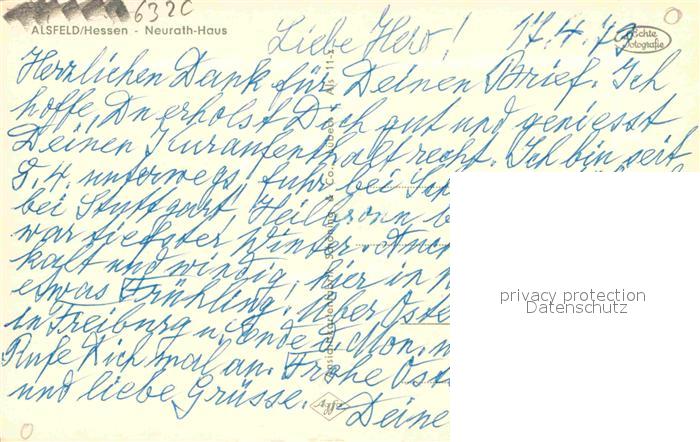 632c
ALSFELD/Hessen - Neurath-Haus
Liebe Hero! 17.4.79
Echte Fotografie
Herzlichen Dank für Deinen Brief. Ich
hoffe, Du erholst Dich gut und geniesst
Deinen Kuraufenthalt recht. Ich bin seit
8.4. unterwegs, fuhr bei
bei Stuttgart, Heilbronn
war tiefster Winter. Auch
kalt und windig, hier in
etwas Frühling. Über Oste
in Freiburg u. Ende d. Mon.
Rufe Dich mal an. Frohe Ost
und liebe Grüsse. Deine
Ansichtskartenfabrik Schöning & Co., Lübeck
Als 11
Agfa
privacy protection
Datenschutz